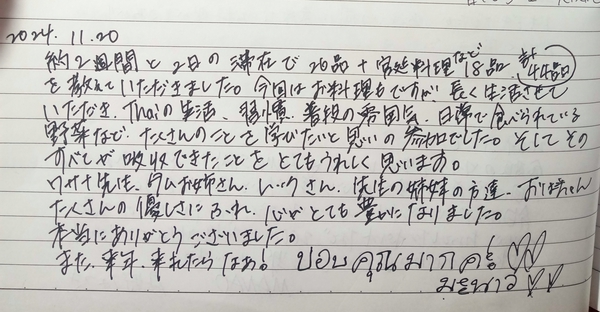 2024. 11.20
約2週間と2日の滞在で26品+宮廷料理など18品 計44品
を教えていただきました。今回はお料理もですが、長く生活させて
いただき、Thaiの生活、習慣、普段の雰囲気、日常で食べられている
野菜など、たくさんのことを学びたいと思いの参加でした。そしてその
すべてが吸収できたことをとてもうれしく思います。
ワサナ先生、タムお姉さん、レックさん、先生の姉妹の方達、おばちゃん
たくさんの優しさにふれ、心がとても豊かになりました。
本当にありがとうございました。
また、来年、来れたらなぁ! ขอบคุณมากค่ะ ♡♡
มะนาว ♡♡